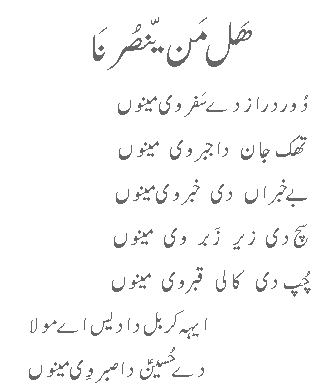 هَل مَن یّنصُر نَا
دُور دراز دے سَفر وی مینوں
تھک جان دا جبر وی مینوں
بے خبراں دی خبر وی مینوں
سچ دی زیر زَبر وی مینوں
چُپ دی کالی قبر وی مینوں
ایہہ کربل دا دیس اے مولا
دے حُسینؑ دا صبر وِی مینوں